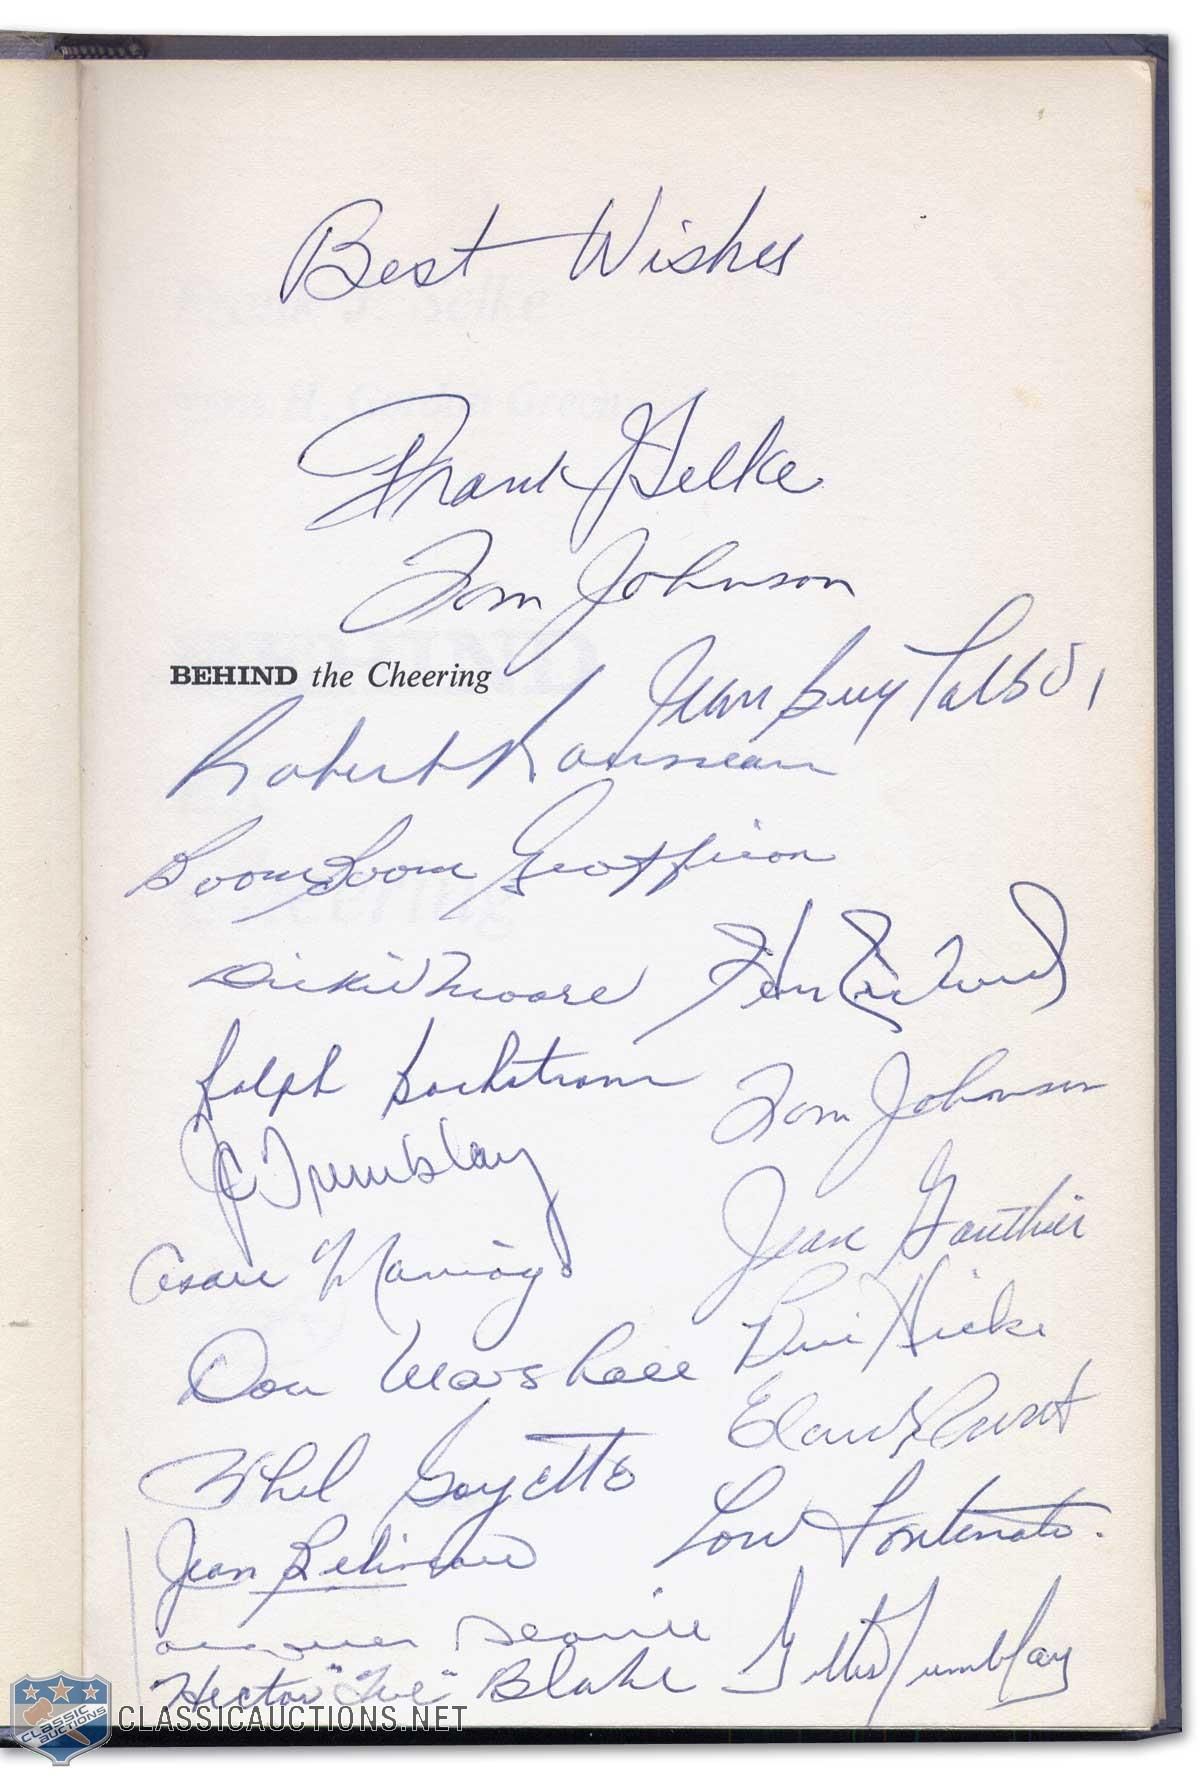 Best Wishes
Frank J Selke
Tom Johnson
BEHIND the Cheering
Jean Guy Talbot
Robert Rousseau
Boom Boom Geoffrion
Dickie Moore
Henri Richard
Ralph Backstrom
Tom Johnson
JC Tremblay
Jean Gauthier
Cesare Maniago
Bill Hicke
Don Marshall
Claude Provost
Phil Goyette
Lou Fontinato.
Jean Beliveau
Jacques Plante
Gilles Tremblay
Hector "Toe" Blake
CLASSIC AUCTIONS
CLASSICAUCTIONS.NET